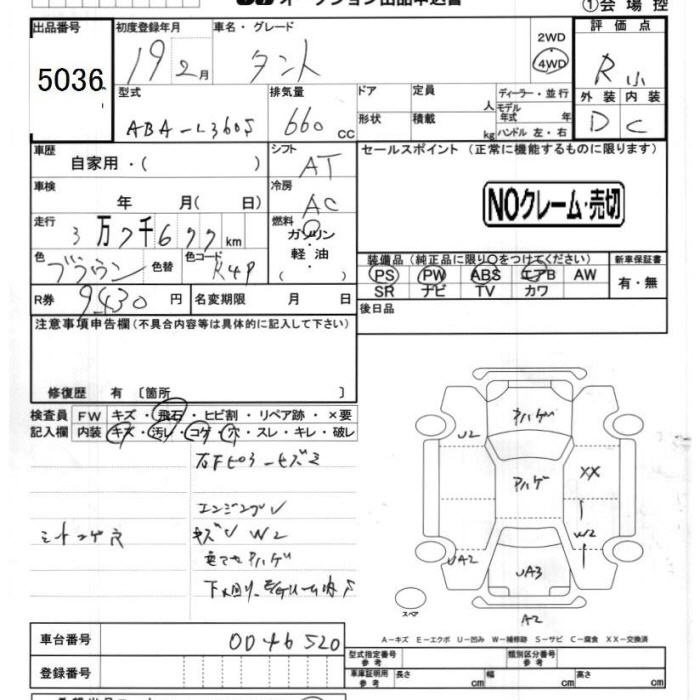 オークション出品申込書 ①会場控
出品番号 初度登録年月 車名・グレード 2WD 評価点
5036 19 2月 タント 4WD R 小
型式 排気量 ドア 定員 人 ディーラー・並行 外装 内装
ABA-L360S 660 cc 形状 積載 kg モデル年式 年 ハンドル 左・右 D C
車歴 シフト セールスポイント (正常に機能するものに限ります)
自家用・( ) AT
車検 冷房 NOクレーム・売切
年 月( 日) AC
走行 燃料
3万7千677km ガソリン・軽油・( )
色 ブラウン 色替 色コード R49 装備品 (純正品に限り○をつけてください) 新車保証書
PS PW ABS エアB AW 有・無
SR ナビ TV カワ
R券 9430円 名変期限 月 日 後日品
注意事項申告欄(不具合内容等は具体的に記入して下さい)
修復歴 有 〔箇所 〕
検査員記入欄 FW キズ・飛石・ヒビ割・リペア跡・×要
内装 キズ・汚レ・コゲ・穴・スレ・キレ・破レ
エンジン
シートコゲ穴 キズU W2
ハゲ
U2 XX W2 UA2 UA3
スペア A2
A-キズ E-エクボ U-凹み W-補修跡 S-サビ C-腐食 XX-交換済
車台番号 0046520 型式指定番号 参考 類別区分番号 参考
登録番号 車庫証明用 参考 長さ cm 幅 cm 高さ cm